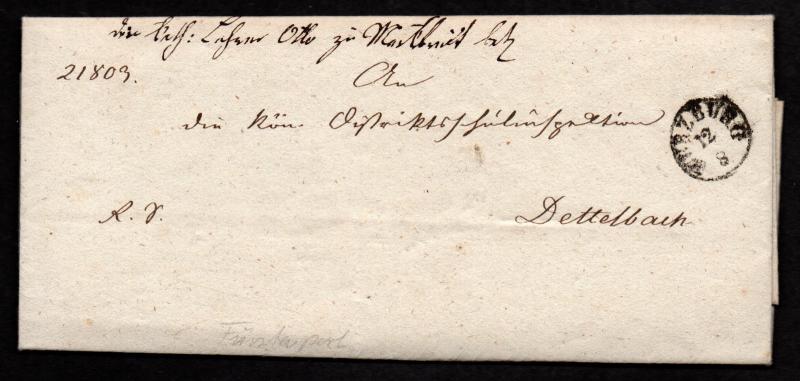 den kath: Lehrer Otto zu Marktbreit betr
21803.
An
die Kön. Distriktsschulinspektion
WÜRZBURG
12
8
R. S.
Dettelbach